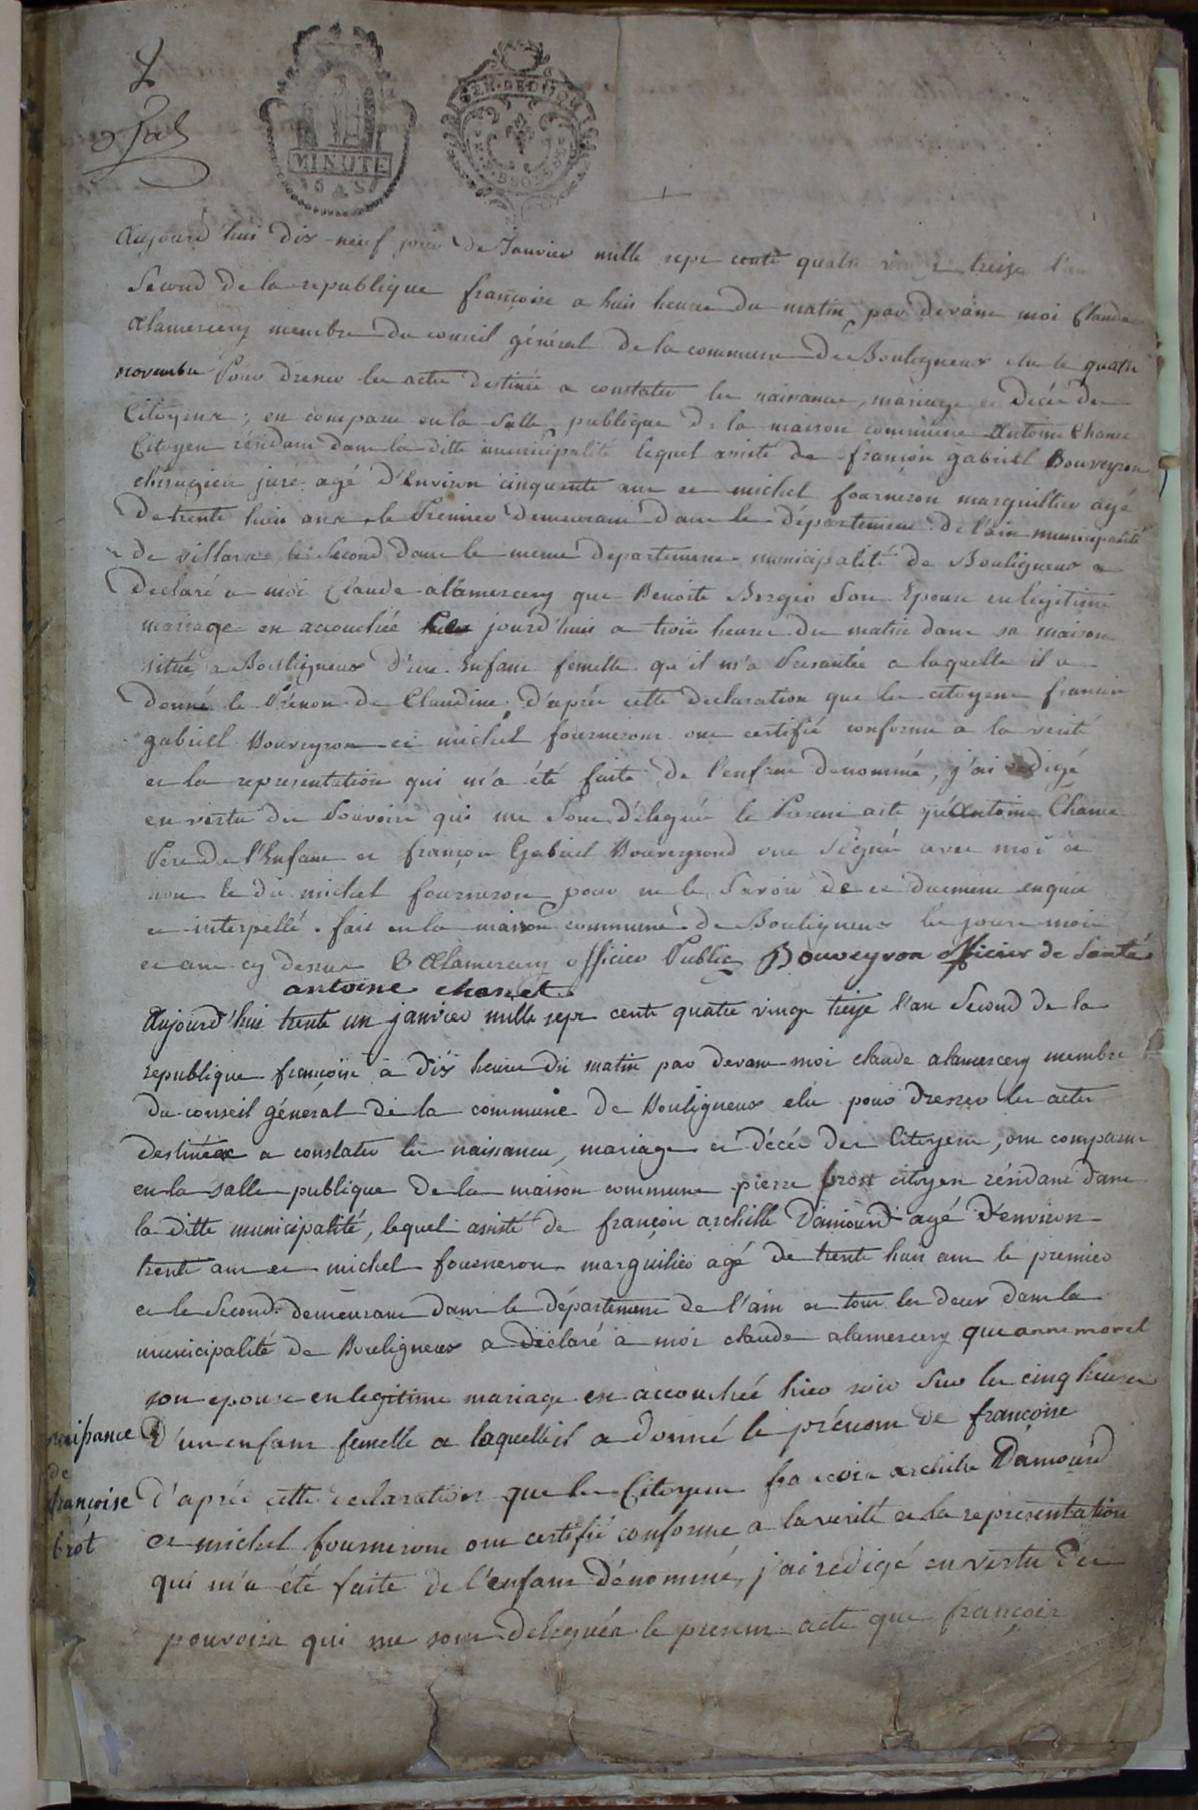 MINUTE
6 S
GEN. DE DIJON
Aujourd'hui dix-neuf jour de Janvier mille sept cents quatre vingt treize l'an
Second de la republique françoise a huit heure du matin par devant moi Claude
alamercery membre du conseil général de la commune de Bouligneux élu le quatre
novembre Pour dresser les actes destinés a constater les naissances, mariage et décés des
Citoyens, en comparu en la Salle publique de la maison commune Antoine Chanet
Citoyen résidant dans la ditte municipalité lequel assisté de françois gabriel Bouveyron
chirugien juré agé d'Environ cinquante ans et michel fourneron marguillier agé
De trente huit ans, le Premier demeurant dans le département de l'ain municipalité
de villars, le Second dans le meme departement municipalité de Bouligneux a
Declaré a moi Claude alamercery que Benoite Bergio Son Epouse en legitime
mariage en accouchée jourd'huis a trois heure du matin dans sa maison
située a Bouligneux d'un Enfant femelle qu il m'a Presantée a laquelle il a
Donné le Prénon de Claudine, d'après cette declaration que les citoyens francois
gabriel Bouveyron et michel fourneron ont certifié conforme a la verité
et la representation qui m'a été faite de l'enfant denommé, j'ai redigé
en vertu des Pouvoirs qui me Sont délegués le Present acte qu'Antoine Chanet
Pere de l'Enfant et françois Gabriel Bouveyrond ont Signé avec moi et
non le dit michel fourneron pour ne le Savoir de ce duement enquis
et interpellé. fait en la maison commune de Bouligneux les jours mois
et an cy dessus C Alamercery officier Public Bouveyron officier de Santé
antoine chanet
Aujourd'hui trente un janvier mille sept cents quatre vingt treize l'an Second de la
republique françoise à dix heure du matin par devant moi claude alamercery membre
du conseil général de la commune de Bouligneux élu pour dresser les actes
destinés a constater les naissances, mariage et décés des Citoyens, ont comparu
en la salle publique de la maison commune pierre brost citoyen résidant dans
la ditte municipalité, lequel assisté de françois archille Damourd agé d'environ
trente ans et michel fourneron marguilier agé de trente huit ans le premier
et le Second demeurant dans le département de l'ain et tous les deux dans la
municipalité de Bouligneux a déclaré à moi claude alamercery que anne morel
son epouse en legitime mariage en accouchée hier soir sur les cinq heures
D'un enfant femelle a laquelle il a donné le prénom de francoise
d'après cette declaration que les Citoyens francois archille Damourd
et michel fourneron ont certifié conforme a la verité et la representation
qui m'a été faite de l'enfant dénommé, j'ai redigé en vertu des
pouvoirs qui me sont delegués le present acte que françois
naissance
de
françoise
brot